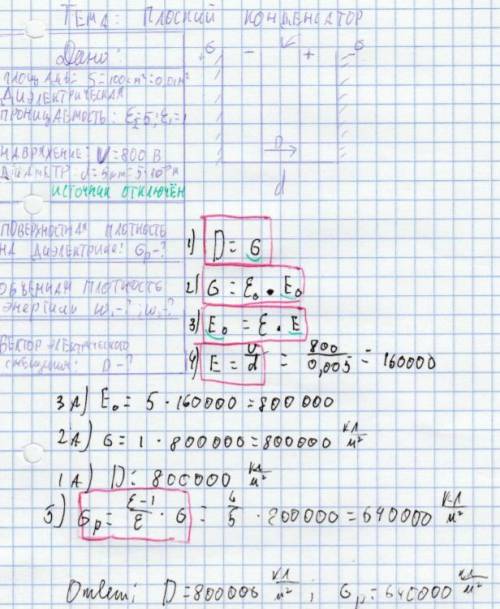 ТЕМА: ПЛОСКИЙ КОНДЕНСАТОР
Дано:
ПЛОЩАДЬ: S=100см²=0,01м²
ДИЭЛЕКТРИЧЕСКАЯ
ПРОНИЦАЕМОСТЬ: ε₂=5; ε₁=1
НАПРЯЖЕНИЕ: V=800 В
ДИАМЕТР: d=5мм=5·10⁻³м
ИСТОЧНИК ОТКЛЮЧЁН
б - V + -б
D
d
ПОВЕРХНОСТНАЯ ПЛОТНОСТЬ
НА ДИЭЛЕКТРИКЕ: бр-?
ОБЪЁМНАЯ ПЛОТНОСТЬ
ЭНЕРГИИ w₁-?; w₂-?
ВЕКТОР ЭЛЕКТРИЧЕСКОГО
СМЕЩЕНИЯ: D-?
1) D= б
2) б = ε₀ · E₀
3) E₀ = ε · E
4) E = V/d = 800/0,005 = 160000
3А) E₀ = 5 · 160000 = 800000
2А) б = 1 · 800000 = 800000 Кл/м²
1А) D = 800000 Кл/м²
5) бр = ε-1/ε · б = 4/5 · 800000 = 640000 Кл/м²
Ответ: D=800000 Кл/м² ; бр=640000 Кл/м²